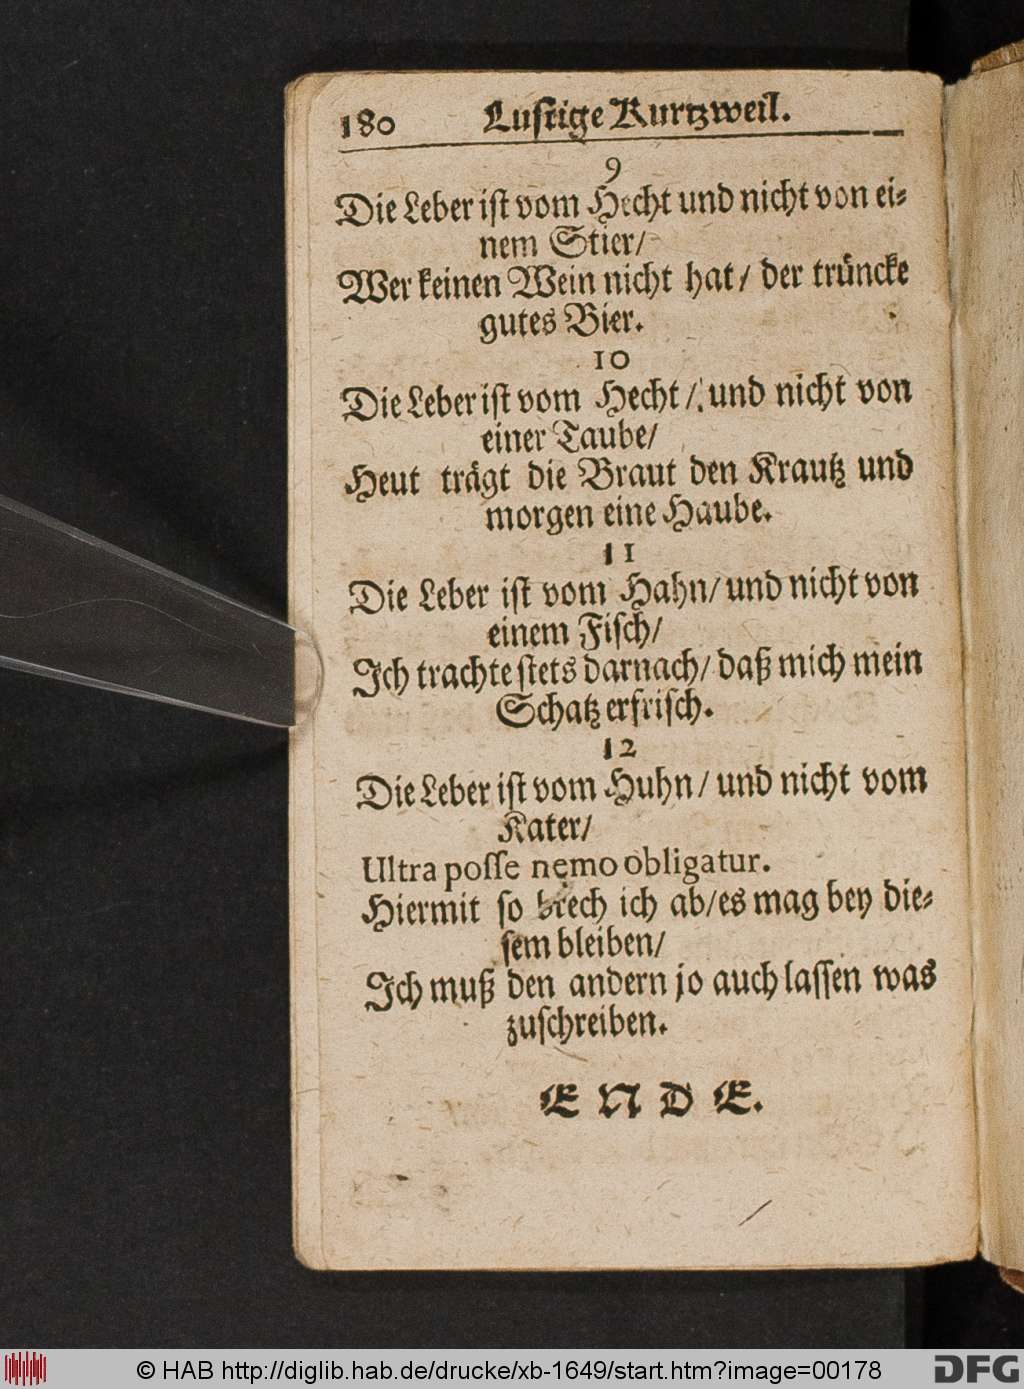 180 Lustige Kurtzweil.
9
Die Leber ist vom Hecht und nicht von ei-
nem Stier/
Wer keinen Wein nicht hat/ der trüncke
gutes Bier.
10
Die Leber ist vom Hecht/ und nicht von
einer Taube/
Heut trägt die Braut den Krantz und
morgen eine Haube.
11
Die Leber ist vom Hahn/ und nicht von
einem Fisch/
Ich trachte stets darnach/ daß mich mein
Schatz erfrisch.
12
Die Leber ist vom Huhn/ und nicht vom
Kater/
Ultra posse nemo obligatur.
Hiermit so brech ich ab/es mag bey die-
sem bleiben/
Ich muß den andern jo auch lassen was
zuschreiben.
ENDE.
© HAB http://diglib.hab.de/drucke/xb-1649/start.htm?image=00178
DFG